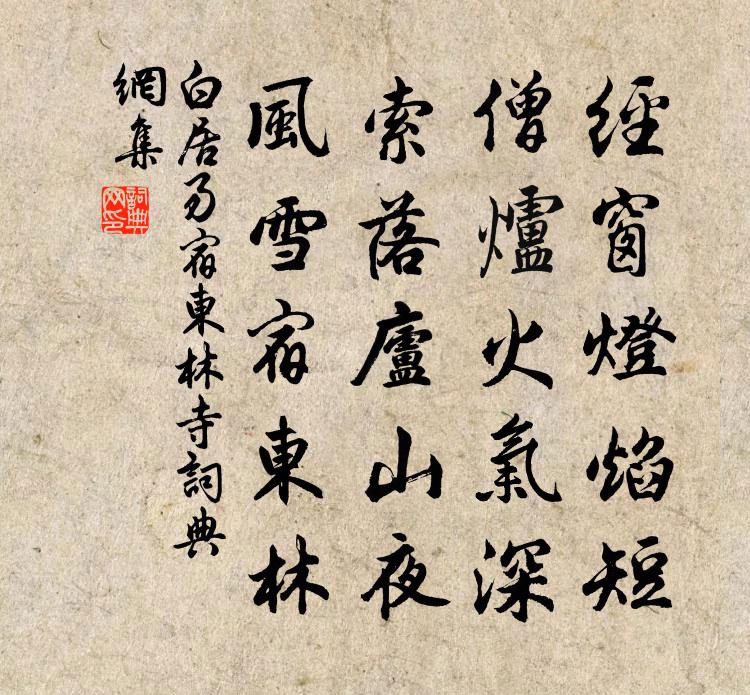 經窗燈焰短
僧爐火氣深
索落廬山夜
風雪宿東林
白居易宿東林寺詞典
網集
詞典網印